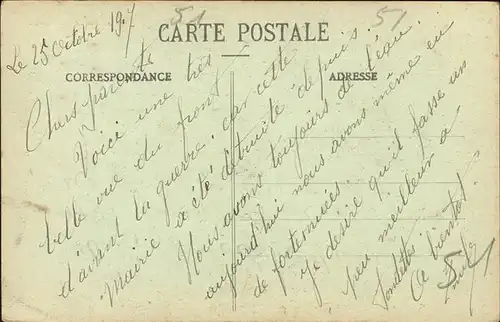 51 51
CARTE POSTALE
CORRESPONDANCE ADRESSE
Le 25 Octobre 1917
Chers parents
Voici une très
belle vue du front
d'avant la guerre, car cette
Mairie a été détruite depuis
Nous avons toujours de l'eau,
aujourd'hui nous avons même eu
de fortes
Je désire qu'il fasse un
peu meilleur à
A bientôt.
51